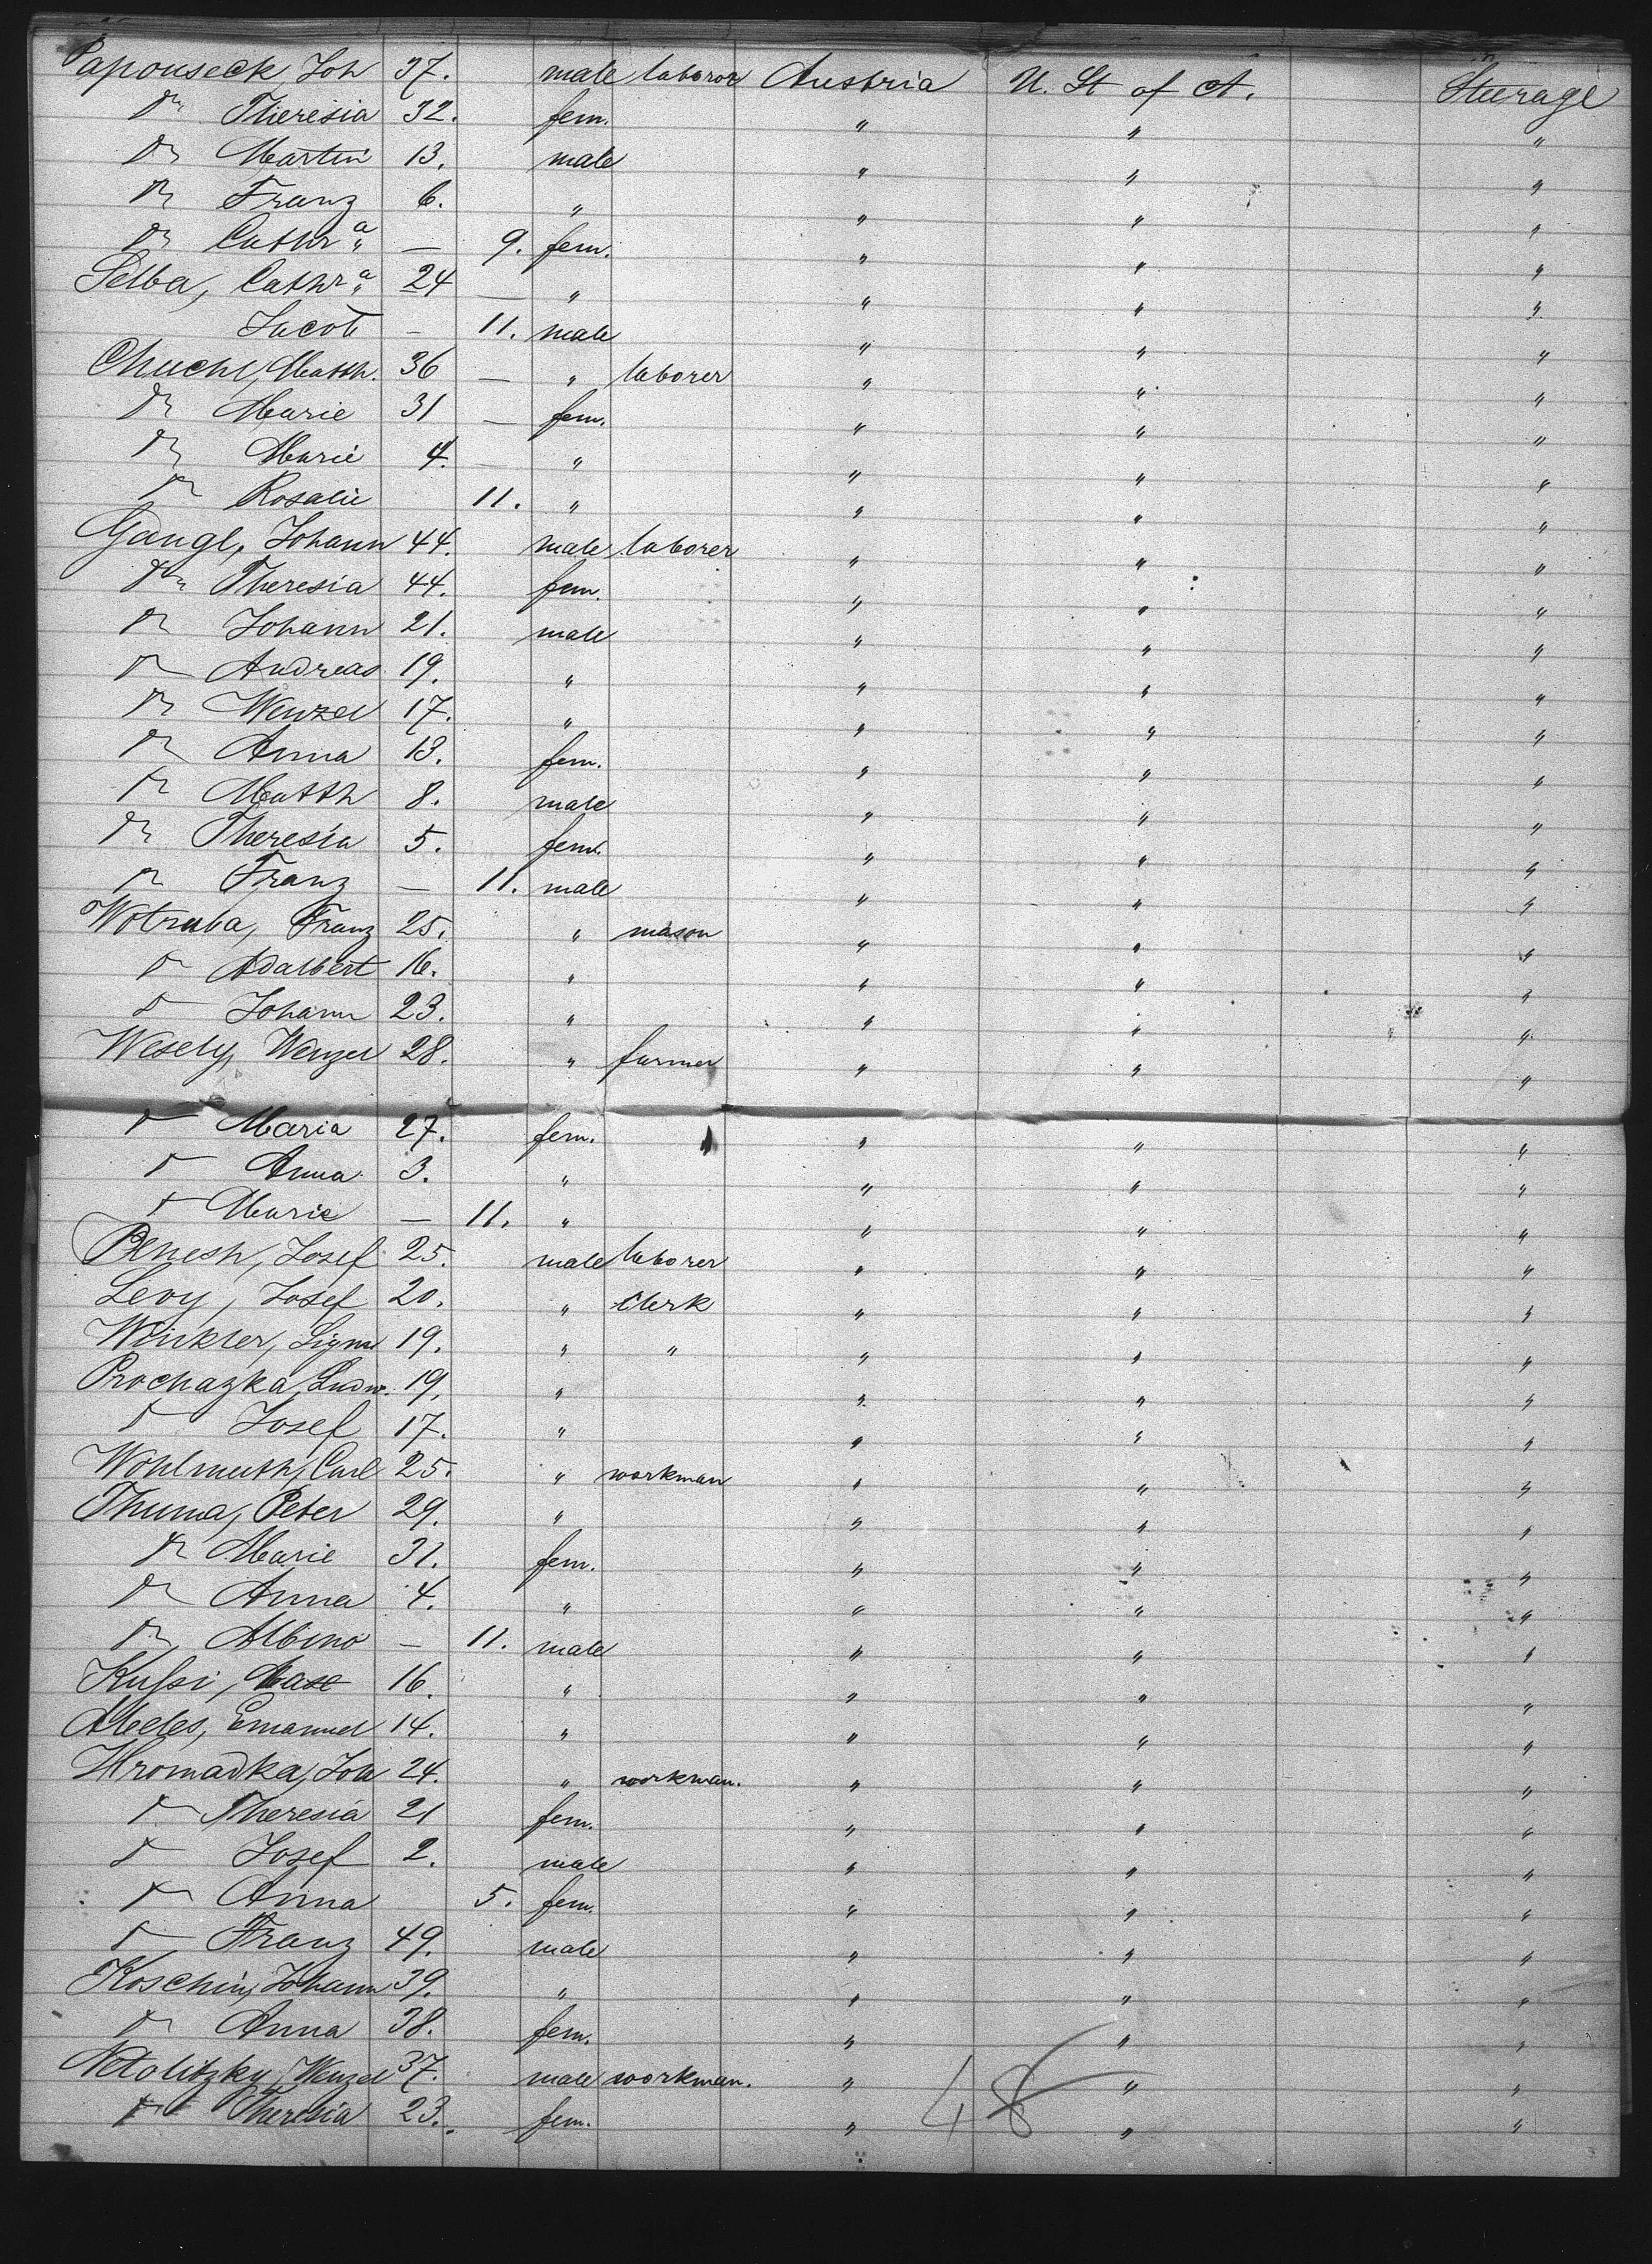 Papouseck Joh 37. male laborer Austria U. St of A. Steerage
do Theresia 32. fem. " " "
do Martin 13. male " " "
do Franz 6. " " " "
do Cathra — 9. fem. " " "
Selba, Cathra 24 — " " " "
Jacob — 11. male " " "
Chuchl, Matth. 36 — " laborer " " "
do Marie 31 — fem. " " "
do Marie 4. — " " " "
do Rosalie 11. " " " "
Gangl, Johann 44. male laborer " " "
do Theresia 44. fem. " " "
do Johann 21. male " " "
do Andreas 19. " " " "
do Wenzel 17. " " " "
do Anna 13. fem. " " "
do Matth 8. male " " "
do Theresia 5. fem. " " "
do Franz — 11. male " " "
Wotruba, Franz 25. " mason " " "
do Adalbert 16. " " " "
do Johann 23. " " " "
Wesely, Wenzel 28. " farmer " " "
do Maria 27. fem. " " "
do Anna 3. " " " "
do Marie — 11. " " " "
Benesh, Josef 25. male laborer " " "
Levy, Josef 20. " Clerk " " "
Winkler, Sigm 19. " " " " "
Prochazka, Ludw. 19. " " " "
do Josef 17. " " " "
Wohlmuth, Carl 25. " workman " " "
Thuma, Peter 29. " " " "
do Marie 31. fem. " " "
do Anna 4. " " " "
do Albino — 11. male " " "
Kussi, Max 16. " " " "
Meles, Emanuel 14. " " " "
Hromadka, Joh 24. " workman. " " "
do Theresia 21 fem. " " "
do Josef 2. male " " "
do Anna 5. fem. " " "
do Franz 49. male " " "
Koschin, Johann 39. " " " "
do Anna 38. fem. " " "
Netolitzky, Wenzel 37. male workman. " " "
do Theresia 23. fem. " " "
48